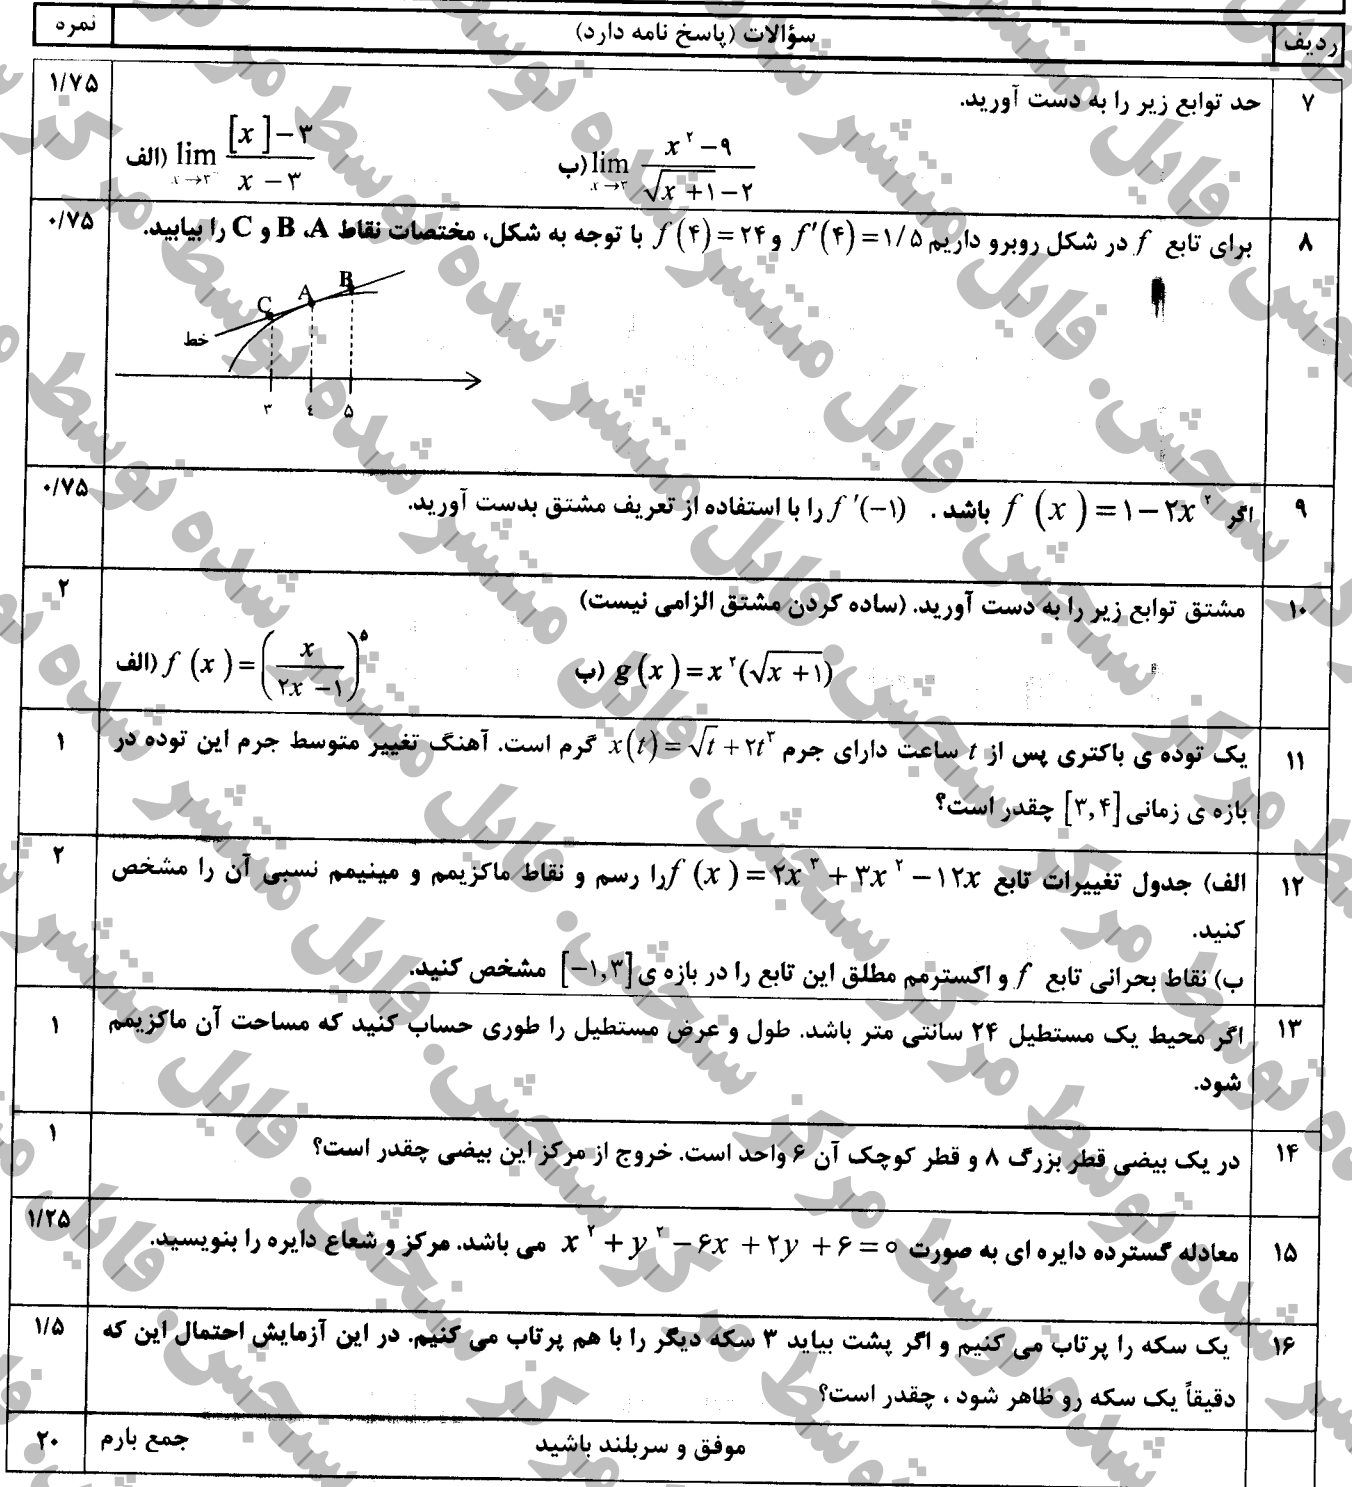 ردیف سؤالات (پاسخ نامه دارد) نمره
۷ حد توابع زیر را به دست آورید. ۱/۷۵
الف) lim x→۳⁻ ([x]−۳)/(x−۳) ب) lim x→۳ (x^۲−۹)/(√(x+۱)−۲)
۸ برای تابع f در شکل روبرو داریم f′(۴)=۱/۵ و f(۴)=۲۴ با توجه به شکل، مختصات نقاط A، B و C را بیابید. ۰/۷۵
B
A
C
خط
۳ ٤ ۵
۹ اگر f(x)=۱−۲x^۲ باشد . f′(−۱) را با استفاده از تعریف مشتق بدست آورید. ۰/۷۵
۱۰ مشتق توابع زیر را به دست آورید. (ساده کردن مشتق الزامی نیست) ۲
الف) f(x)=(x/(۲x−۱))^۵ ب) g(x)=x^۲(√(x+۱))
۱۱ یک توده ی باکتری پس از t ساعت دارای جرم x(t)=√t+۲t^۳ گرم است. آهنگ تغییر متوسط جرم این توده در ۱
بازه ی زمانی [۳,۴] چقدر است؟
۱۲ الف) جدول تغییرات تابع f(x)=۲x^۳+۳x^۲−۱۲x را رسم و نقاط ماکزیمم و مینیمم نسبی آن را مشخص ۲
کنید.
ب) نقاط بحرانی تابع f و اکسترمم مطلق این تابع را در بازه ی [−۱,۳] مشخص کنید.
۱۳ اگر محیط یک مستطیل ۲۴ سانتی متر باشد. طول و عرض مستطیل را طوری حساب کنید که مساحت آن ماکزیمم ۱
شود.
۱۴ در یک بیضی قطر بزرگ ۸ و قطر کوچک آن ۶ واحد است. خروج از مرکز این بیضی چقدر است؟ ۱
۱۵ معادله گسترده دایره ای به صورت x^۲+y^۲−۶x+۲y+۶=۰ می باشد. مرکز و شعاع دایره را بنویسید. ۱/۲۵
۱۶ یک سکه را پرتاب می کنیم و اگر پشت بیاید ۳ سکه دیگر را با هم پرتاب می کنیم. در این آزمایش احتمال این که ۱/۵
دقیقاً یک سکه رو ظاهر شود ، چقدر است؟
موفق و سربلند باشید جمع بارم ۲۰
فایل منتشر شده توسط مرکز سنجش.